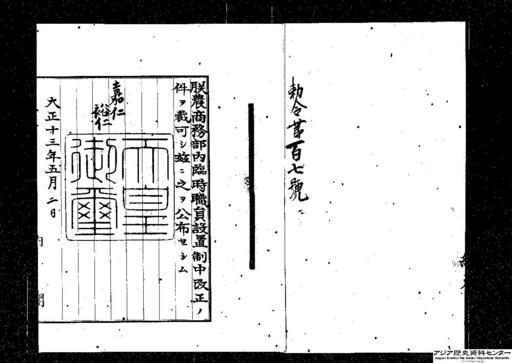 勅令第百七號
朕農商務部內臨時職員設置制中改正ノ
件ヲ裁可シ玆ニ之ヲ公布セシム
嘉仁
裕仁
天皇
御璽
大正十三年五月二日
內閣
アジア歴史資料センター
Japan Center for Asian Historical Records